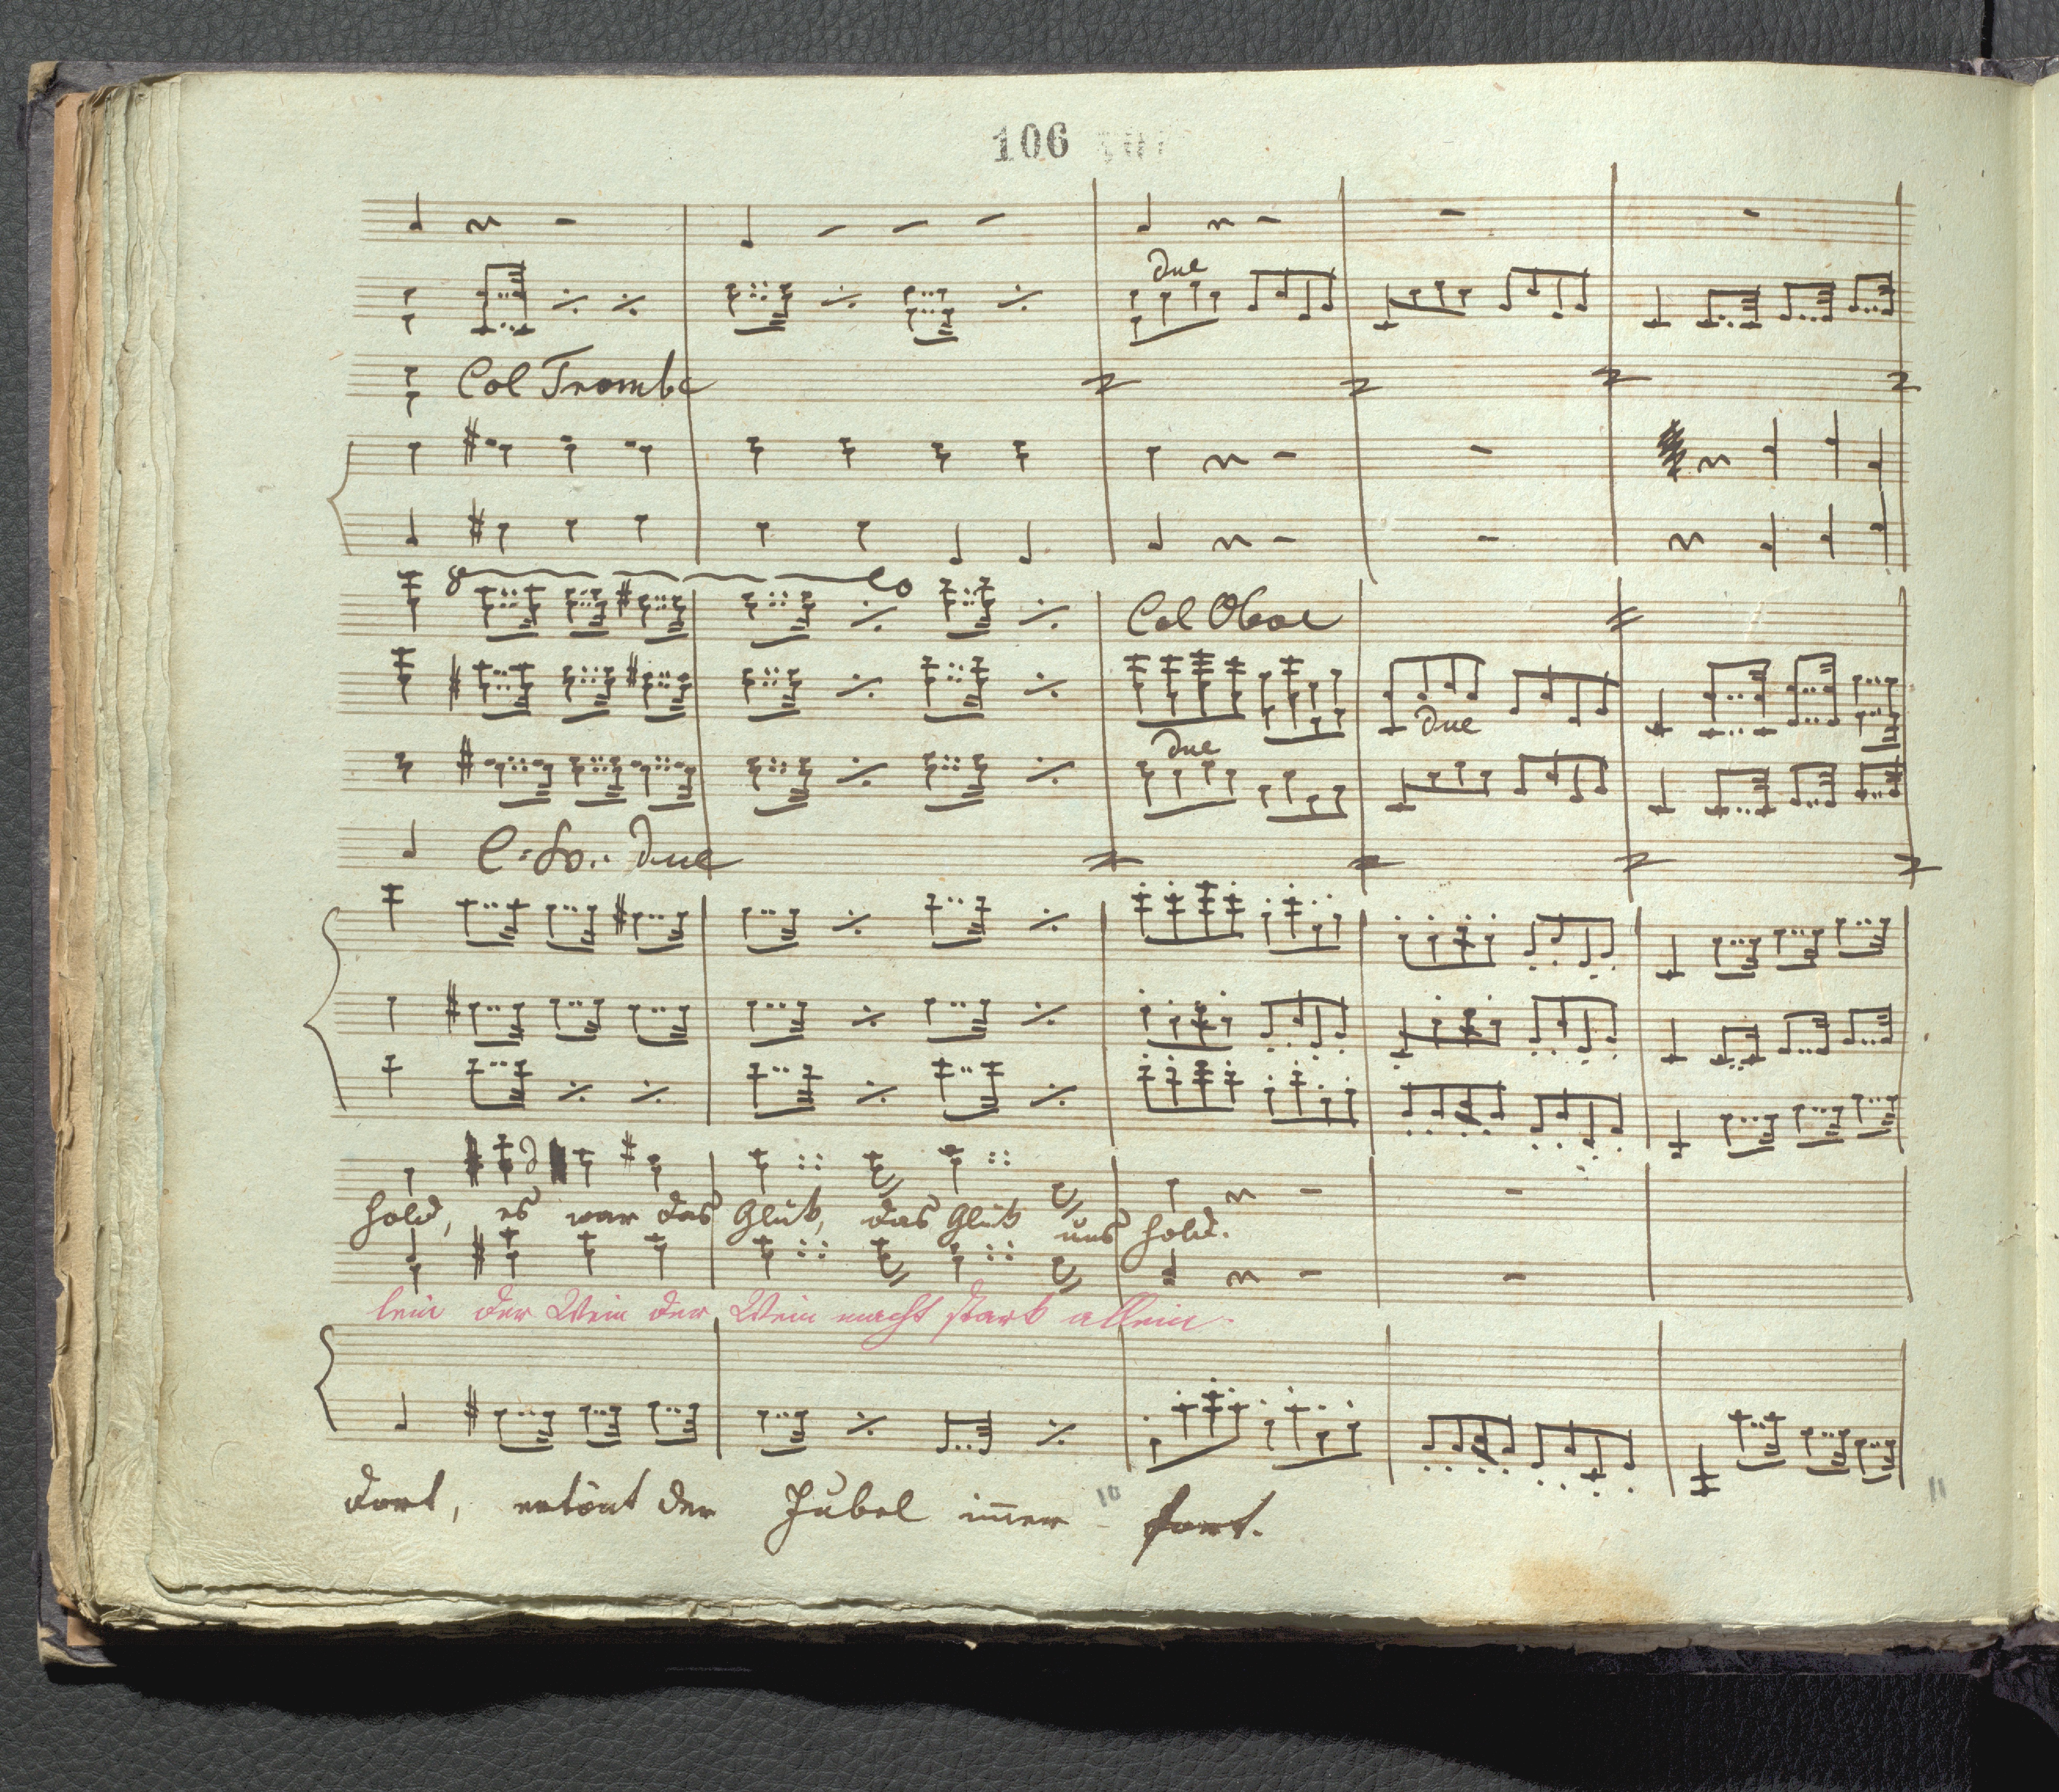 106
due
Col Trombe
8
Col Oboe
due
due
due
hold, es war das Glük, das Glük uns hold.
lein der Wein der Wein macht stark allein.
dort, ertönt der Jubel im̄er fort.
10
11